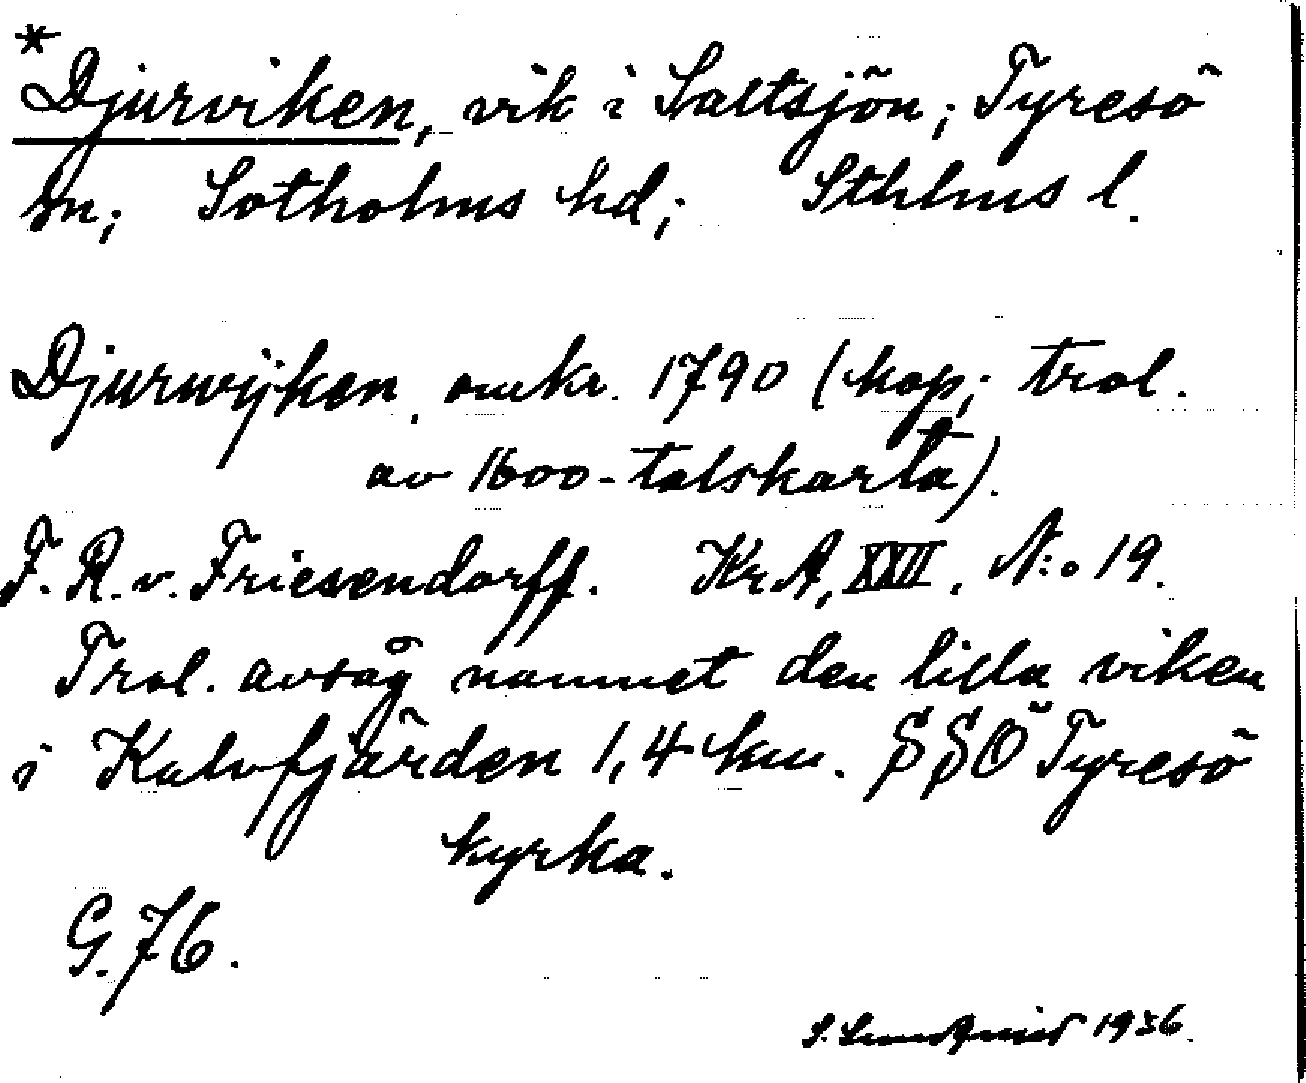 *Djurviken, vik i Saltsjön; Tyresö
sn; Sotholms hd; Sthlms l.
Djurwijken, omkr. 1790 (kop; trol.
av 1600-talskarta).
F. R. v. Friesendorff. Kr.A, XXII, N:o 19.
Trol. avsåg namnet den lilla viken
i Kalvfjärden 1,4 km. SSÖ Tyresö
kyrka.
G. 76.
S. Lundqvist 1936.